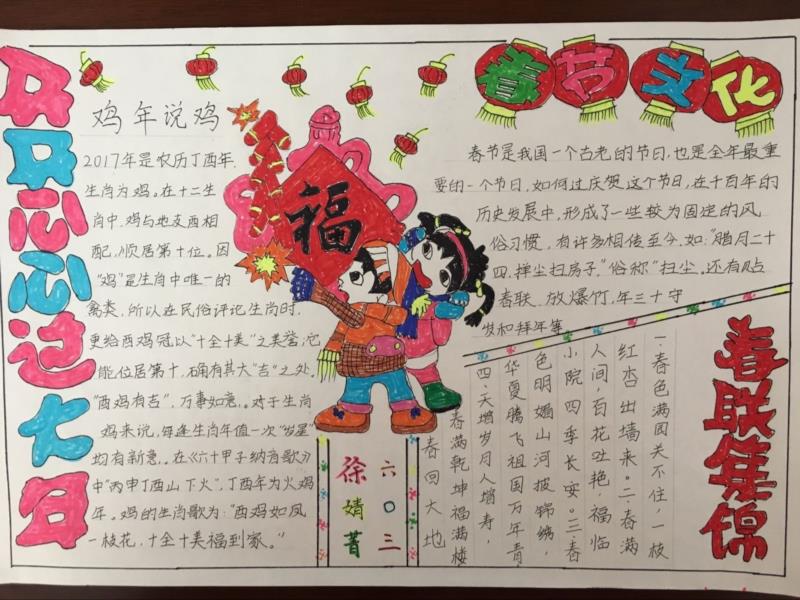 开开心心过大年
鸡年说鸡
2017年是农历丁酉年,
生肖为鸡。在十二生
肖中,鸡与地支酉相
配,顺居第十位。因
"鸡"是生肖中唯一的
禽类,所以在民俗评记生肖时,
更给酉鸡冠以"十全十美"之美誉;它
能位居第十,确有其大"吉"之处。
"酉鸡有吉",万事如意。对于生肖
鸡来说,每逢生肖年值一次"发星"
均有新意。在《六十甲子纳音歌》
中"丙申丁酉山下火",丁酉年为火鸡
年。鸡的生肖歌为:"酉鸡如凤
一枝花,十全十美福到家。"
福
六〇三
徐婧菁
春节文化
春节是我国一个古老的节日,也是全年最重
要的一个节日,如何过庆贺这个节日,在千百年的
历史发展中,形成了一些较为固定的风
俗习惯,有许多相传至今,如:"腊月二十
四,掸尘扫房子"俗称"扫尘。还有贴
春联、放爆竹,年三十守
岁和拜年等
春联集锦
一.春色满园关不住,一枝
红杏出墙来。二.春满
人间,百花吐艳,福临
小院四季长安。三.春
色明媚山河披锦绣,
华夏腾飞祖国万年青
四.天增岁月人增寿,
春满乾坤福满楼
春回大地